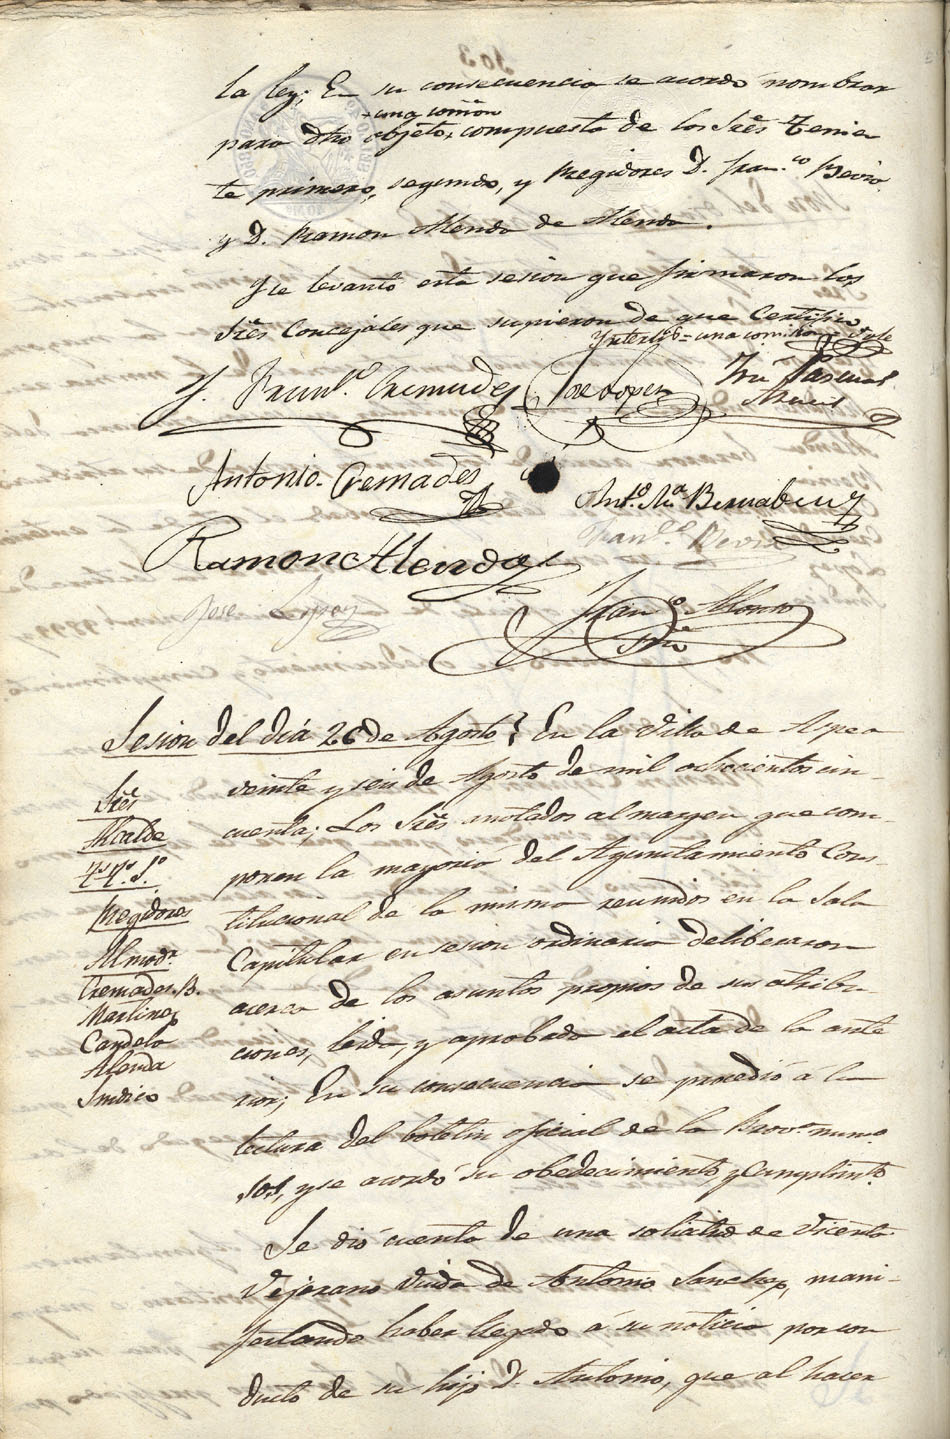 la ley; En su consecuencia se acordó nombrar
+ una comⁿ
para dho objeto, compuesta de los Sres. Tenien
te primero, segundo, y Regidores D. Fran.co Beviá
y D. Ramon Alenda de Alenda.
Y se levantó esta sesion que firmaron los
Sres. Concejales que supieron de que Certifico
Ynterldo = una comision =
J. Cremades
José Lopez
José Pascual
Antonio Cremades
Ant.o M.a Bernabeu
Fran.co Beviá
Ramon Alenda
Jose Lopez
Fran.co Alonso
Srio
Sesion del dia 26 de Agosto
En la Villa de Aspe a
veinte y seis de Agosto de mil ochocientos cin-
cuenta; Los Sres. anotados al margen que com-
ponen la mayoria del Ayuntamiento Cons
titucional de la misma reunidos en la Sala
Capitular en sesion ordinaria deliberaron
acerca de los asuntos propios de sus atribu
ciones, leida, y aprobada el acta de la ante
rior; En su consecuencia se procedió á la
lectura del boletin oficial de la Prov.a num.o
101, y se acordó su obedecimiento y cumplim.to
Se dió cuenta de una solicitud de Vicenta
Vejerano Viuda de Antonio Sanchez, mani-
festando haber llegado á su noticia por con
ducto de su hijo D. Antonio, que al hacer
Sres.
Alcalde
Regidores
Almod.r
Cremades. B.
Martinez
Candela
Alenda
Sindico